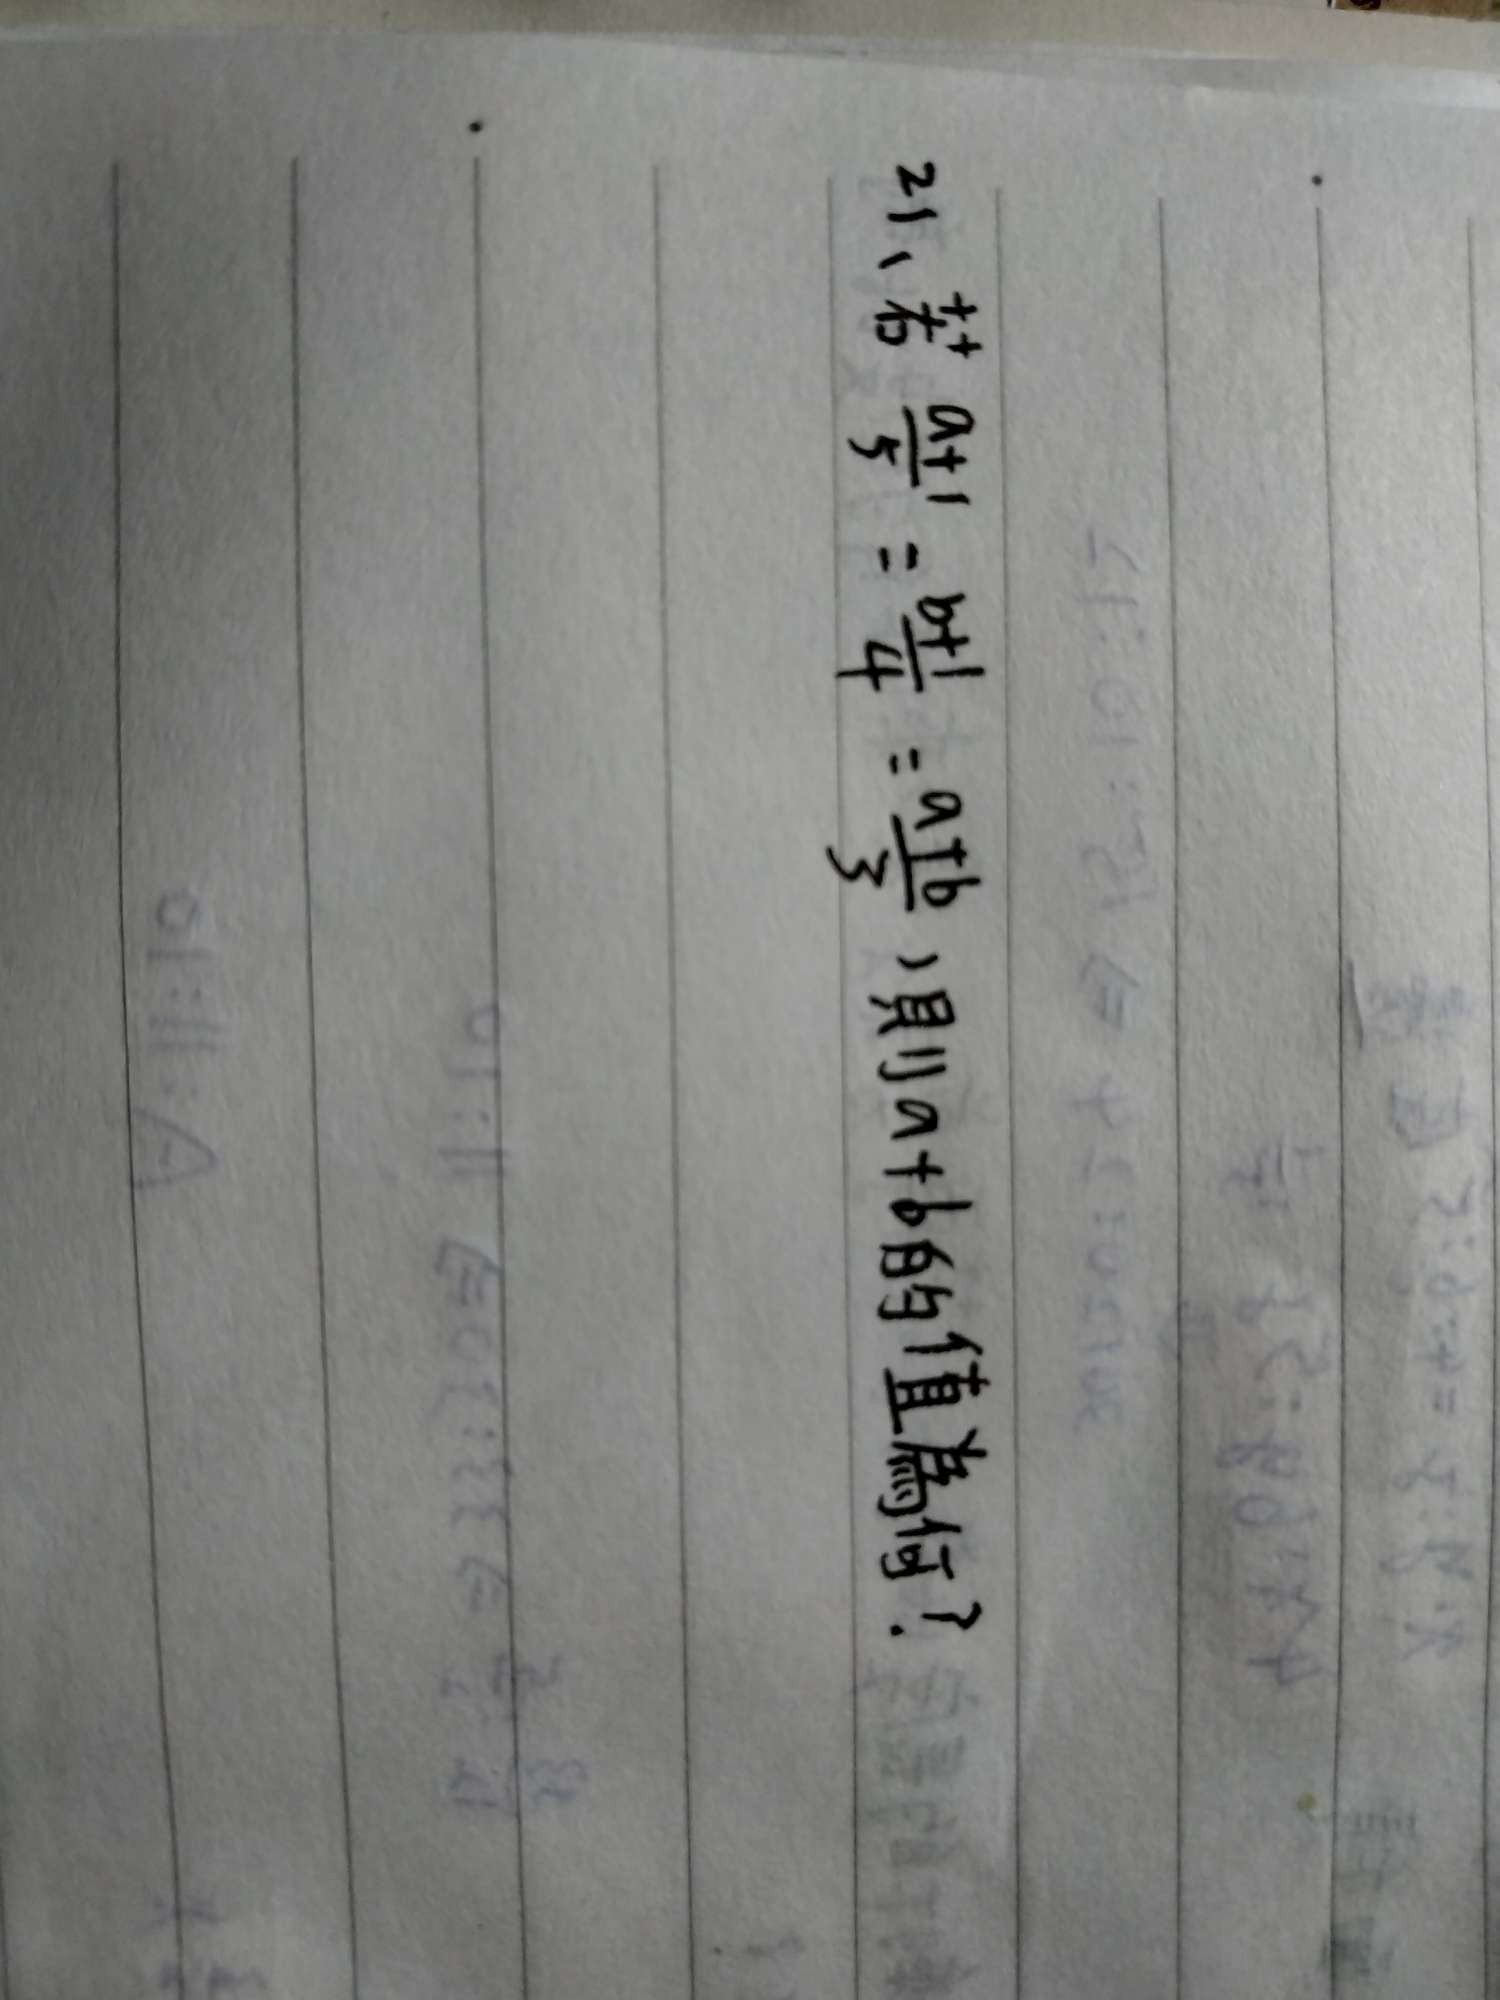 21、若 (a+1)/5 = (b+1)/4 = (a+b)/3，則a+b的值為何？